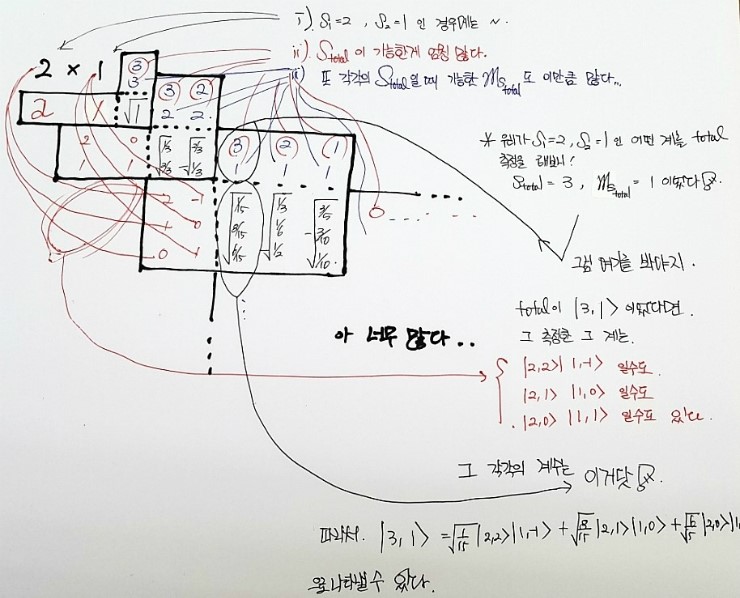 i). S₁=2, S₂=1 인 경우에는 ~.
ii). S_total 이 가능한게 엄청 많다.
iii) 또 각각의 S_total일 때 가능한 m_S_total 도 이만큼 많다...
2 × 1
3
3
2 1 √1
3 2
2 2
2 0 √1/3 √2/3
1 1 √2/3 -√1/3
3 2 1
1 1 1
2 -1 √1/15 √1/3 √3/5
1 0 √8/15 √1/6 -√3/10
0 1 √6/15 -√1/2 √1/10
0
* 우리가 S₁=2, S₂=1 인 어떤 계를 total
측정을 해보니!
S_total = 3, m_S_total = 1 이었다
그럼 여기를 봐야지.
total이 |3,1⟩ 이었다면.
그 측정한 그 계는.
|2,2⟩|1,-1⟩ 일수도.
|2,1⟩ |1,0⟩ 일수도
|2,0⟩ |1,1⟩ 일수도 있다.
아 너무 많다..
그 각각의 계수는 이거닷
따라서. |3,1⟩ = √1/15 |2,2⟩|1,-1⟩ + √8/15 |2,1⟩|1,0⟩ + √6/15 |2,0⟩|1,
로 나타낼 수 있다.